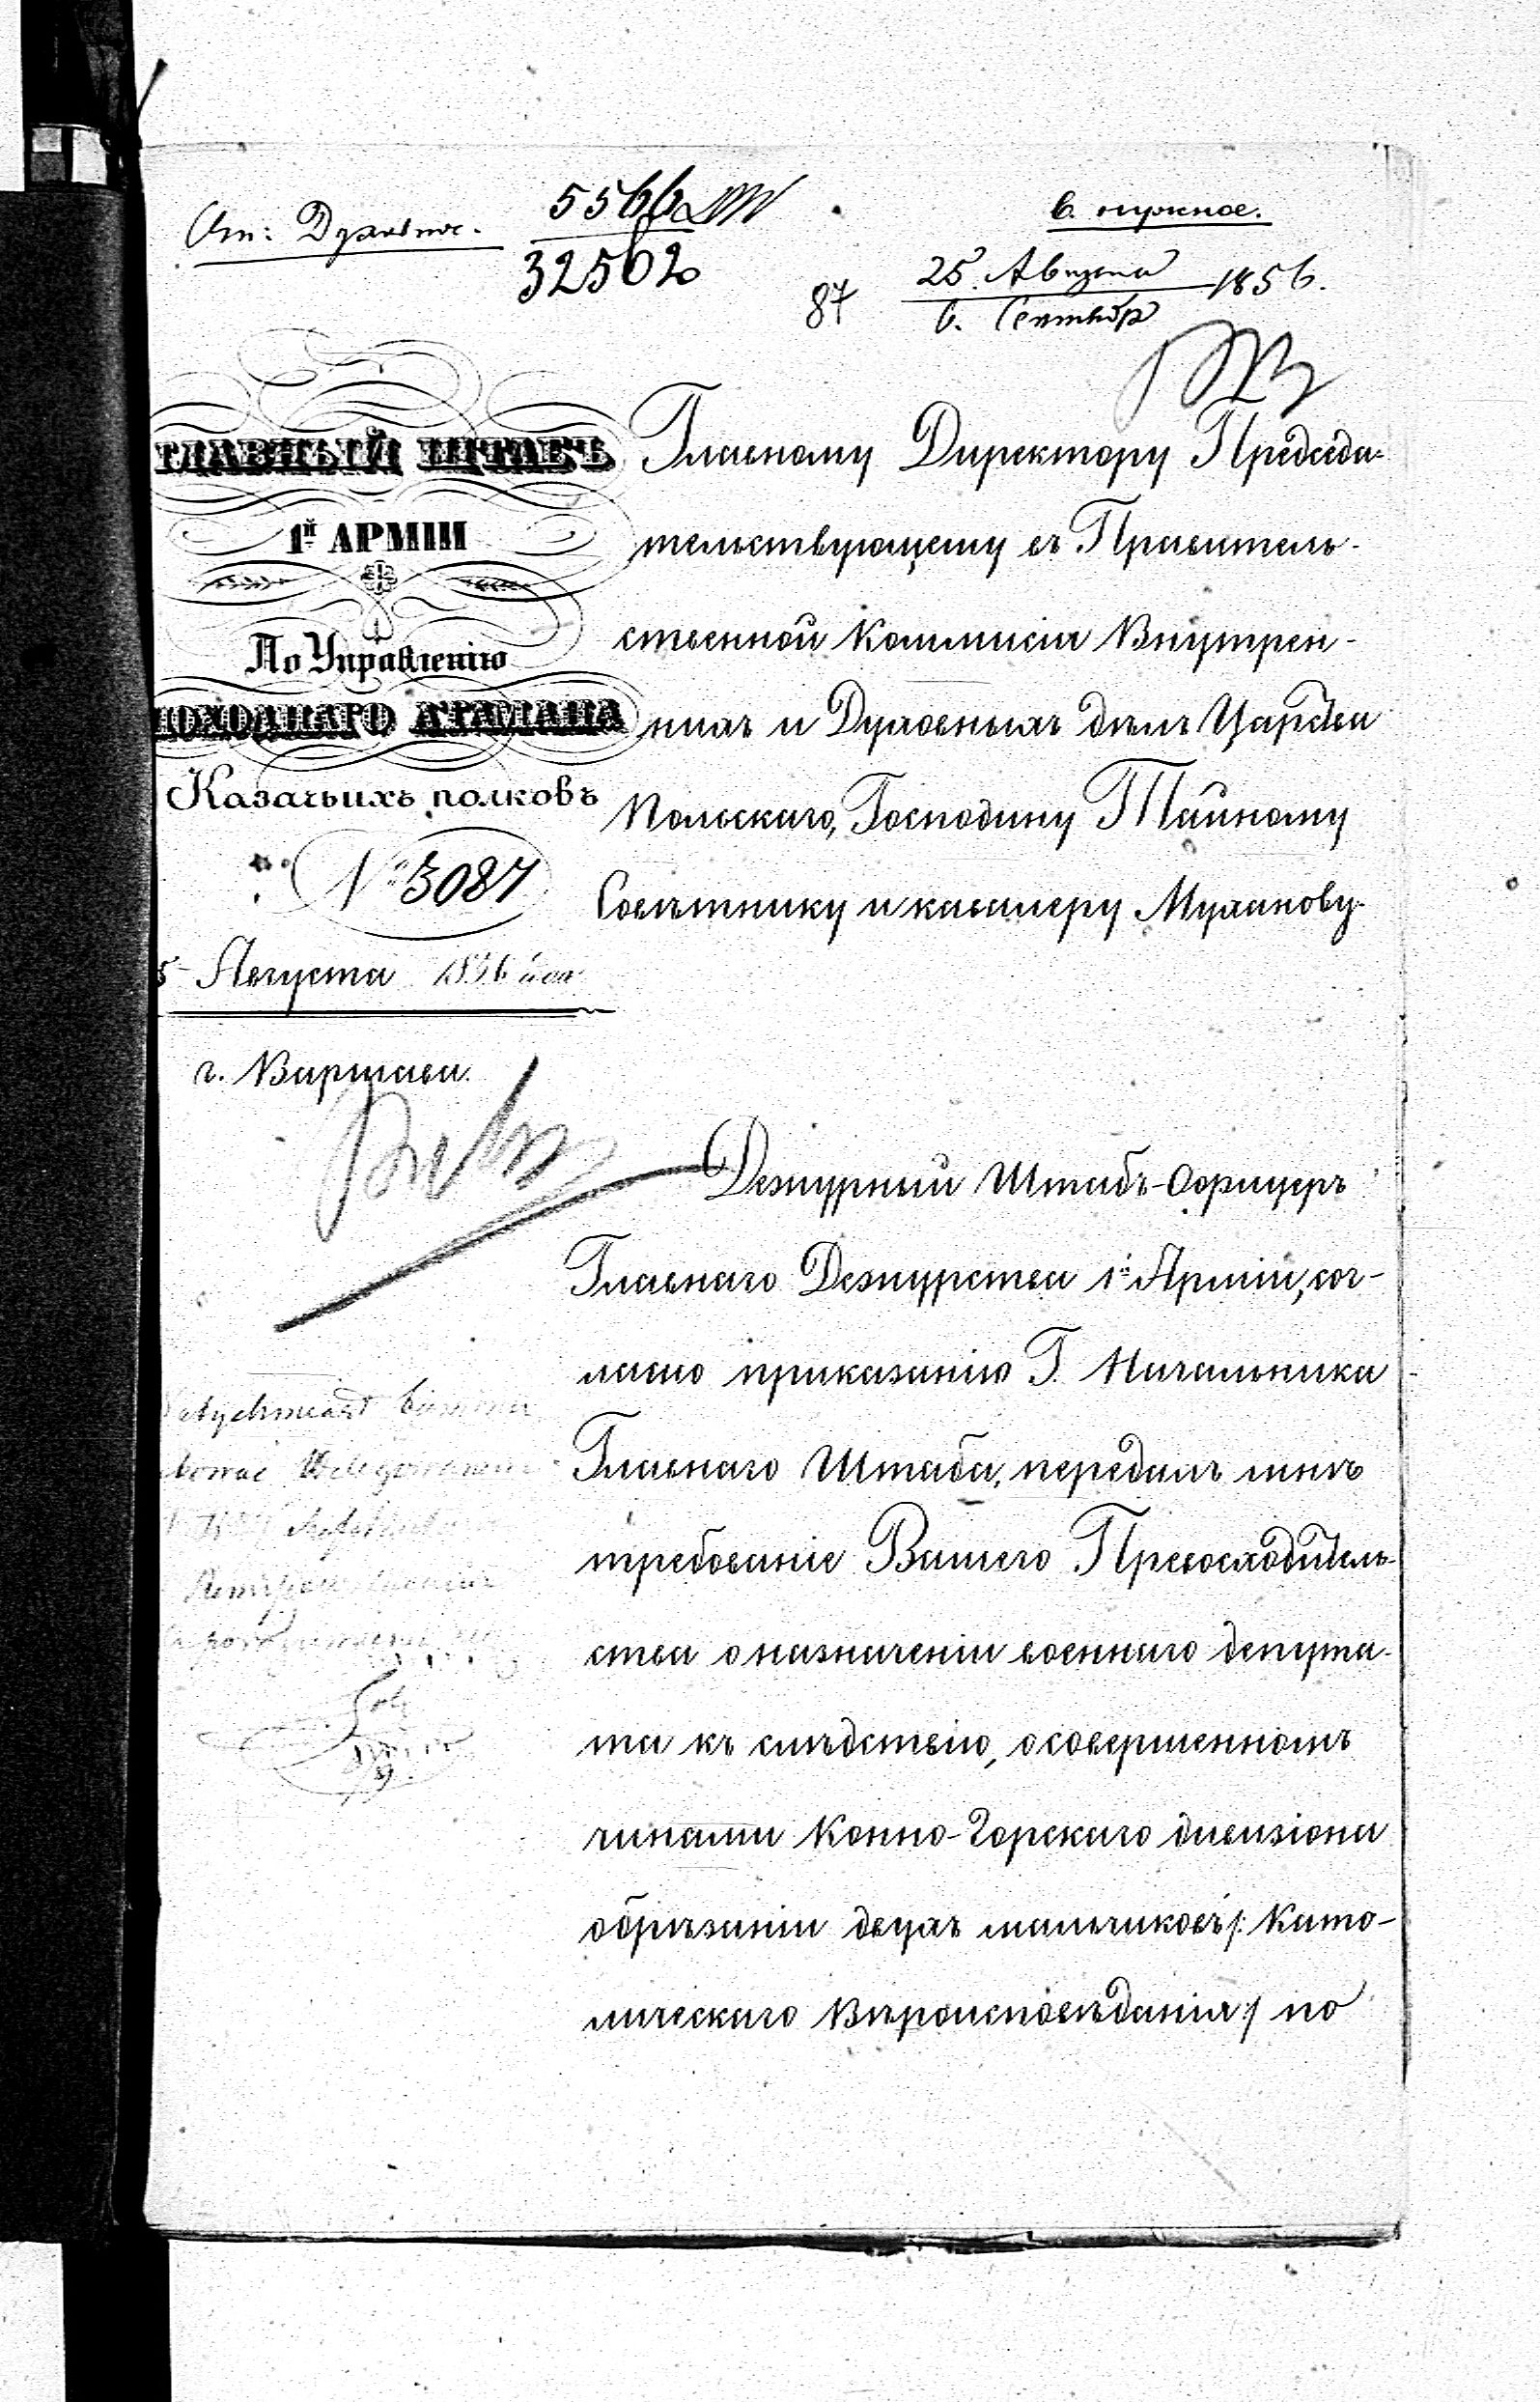 От: Духовное.
5566
32562
в. нужное.
87
25. Августа 1856.
6. Сентябр
ГЛАВНЫЙ ШТАБЪ
1й АРМІИ
По Управленію
ПОХОДНАГО АТАМАНА
Казачьихъ полковъ
№ 3087
5 Августа 1856 года
г. Варшава.
Главному Директору Председа-
тельствующему въ Правитель-
ственной Коммисіи Внутрен-
нихъ и Духовныхъ дѣлъ Царства
Польскаго, Господину Тайному
Совѣтнику и кавалеру Муханову.
Дежурный Штабъ-Офицеръ
Главнаго Дежурства 1й Арміи, сог-
ласно приказанію Г. Начальника
Главнаго Штаба, передалъ мнѣ
требованіе Вашего Превосходитель-
ства о назначеніи военнаго депута-
та къ слѣдствію, о совершенномъ
чинами Конно-Горскаго дивизіона
обрѣзаніи двухъ мальчиковъ /: Като-
лическаго Вѣроисповѣданія :/ по